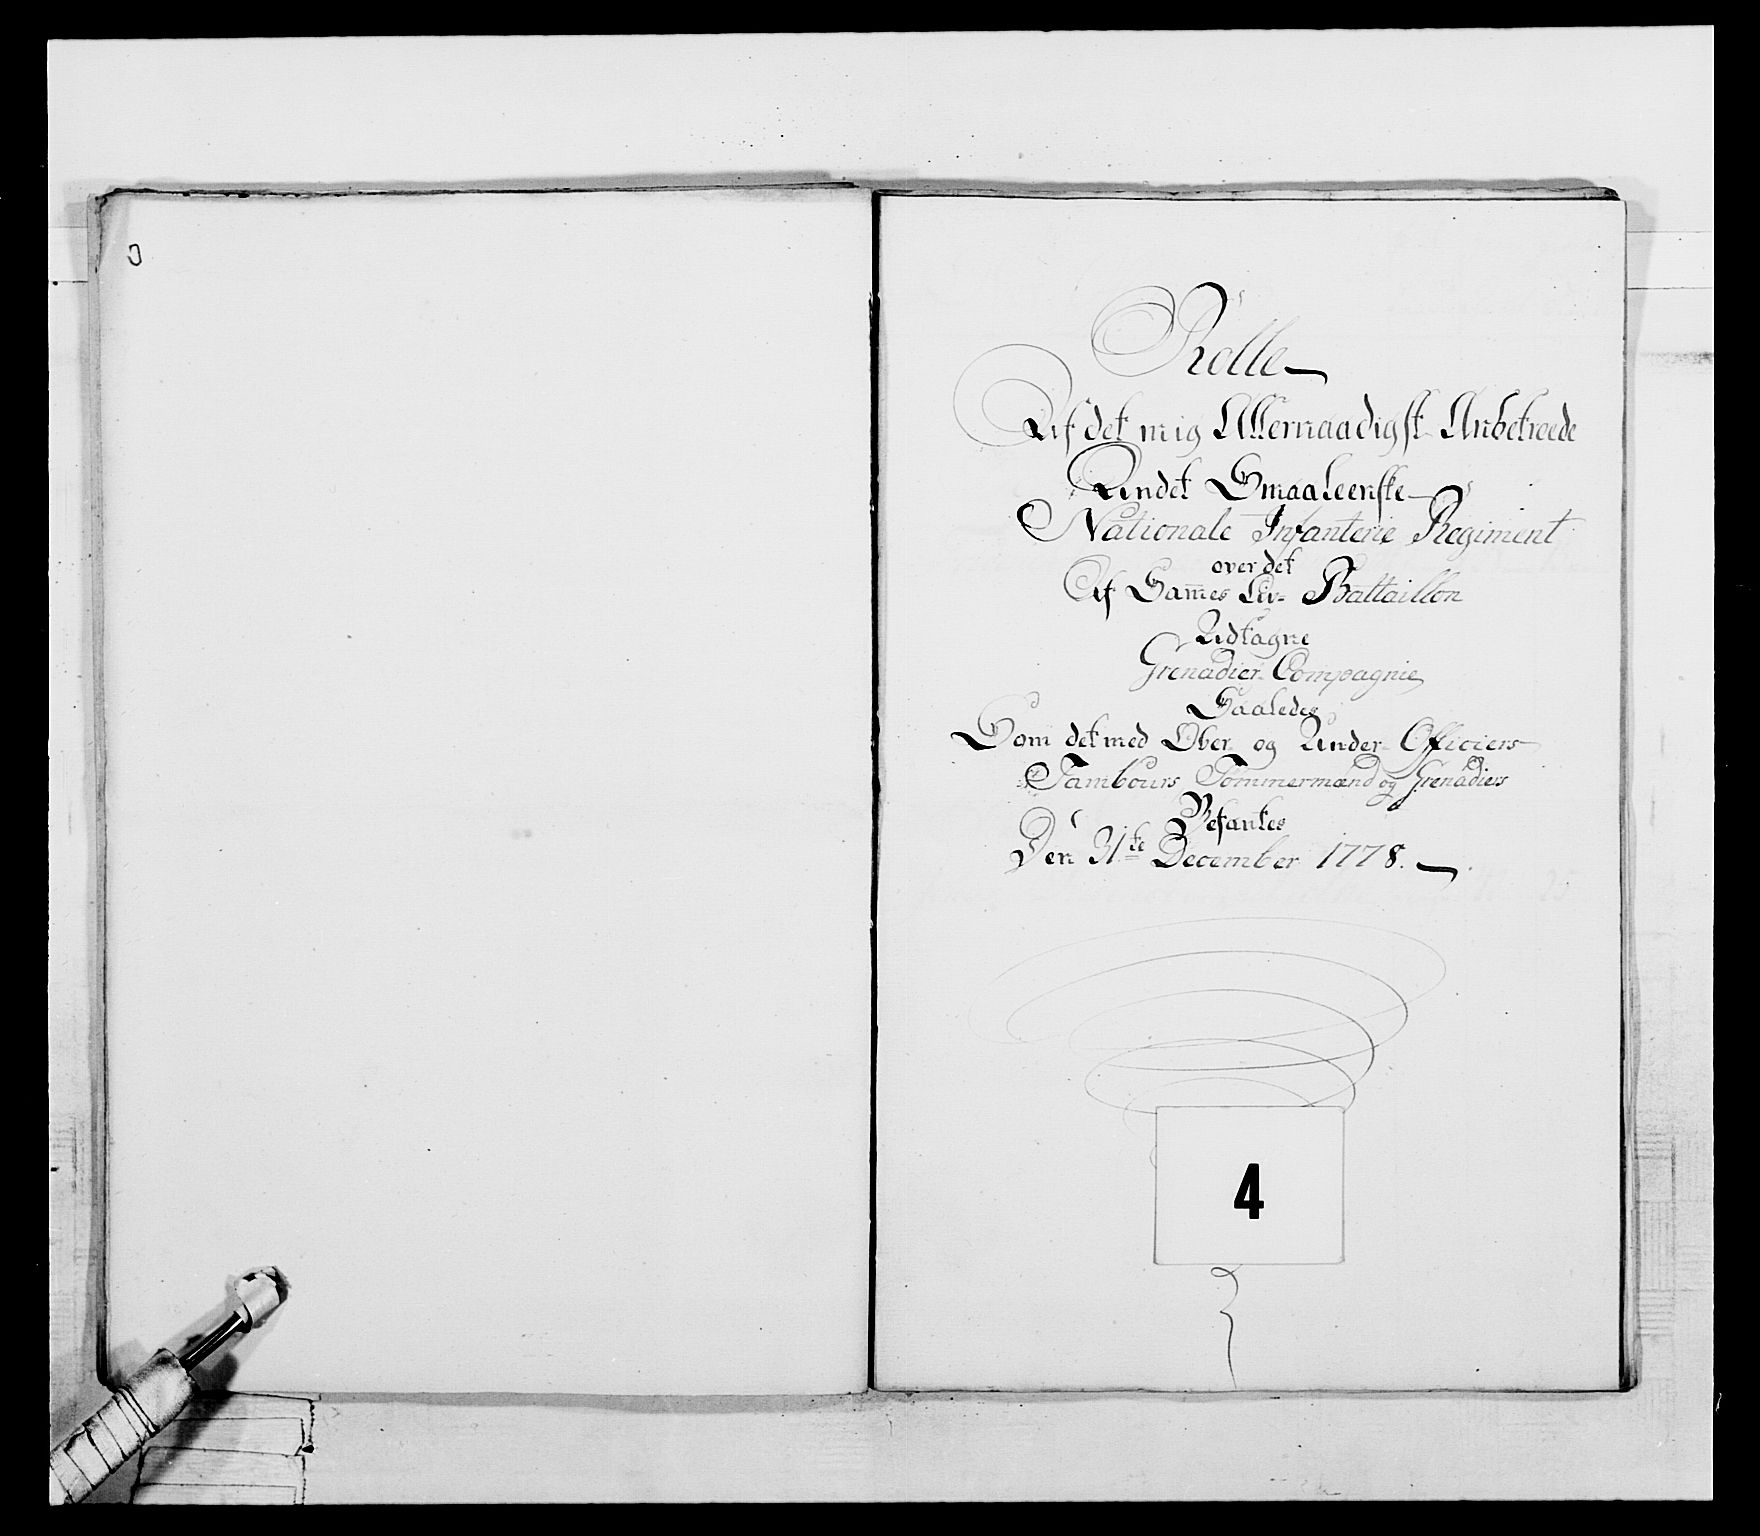 Rolle
Af det mig Allernaadigst Anbetroede
Andet Smaaleenske
Nationale Infanterie Regiment
over det
Af Sam̅es Liv- Battaillon
Udtagne
Grenadier Compagnie
Saaledes
Som det med Ober og Under Officiers
Tambours Tømmermænd og Grenadiers
Befantes
Den 31te December 1778.
4